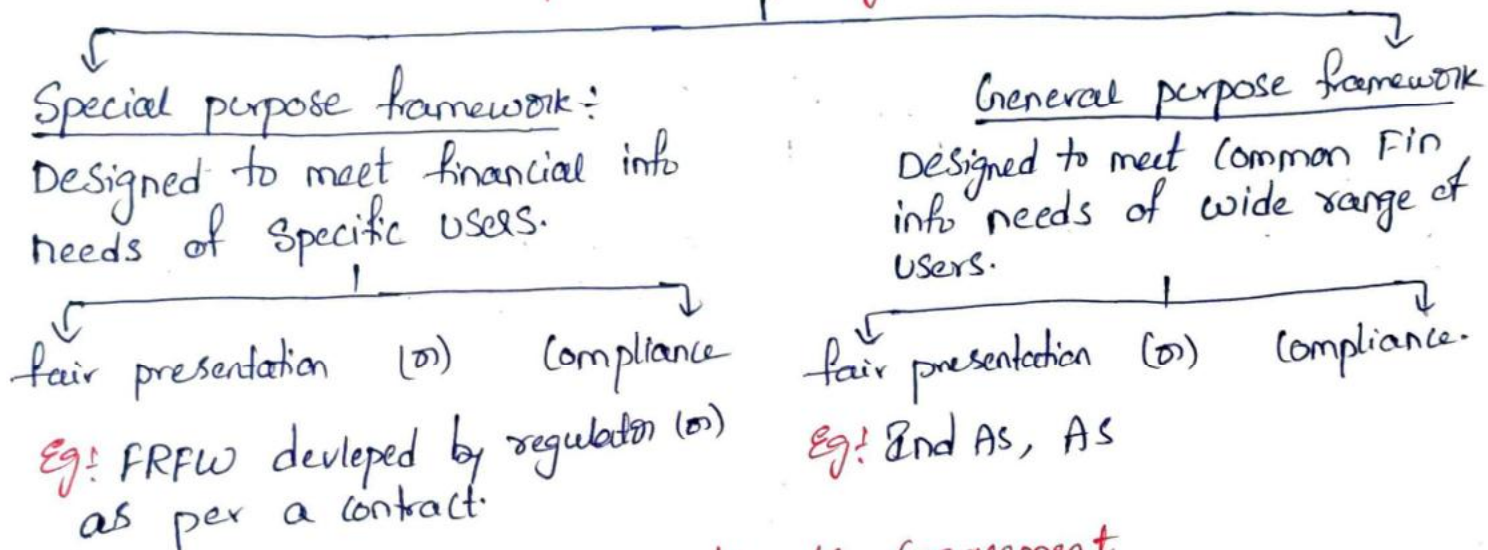 Special purpose framework:
Designed to meet financial info
needs of specific users.
fair presentation (or) Compliance
Eg: FRFW devleped by regulator (or)
as per a contract.
General purpose framework
Designed to meet Common Fin
info needs of wide range of
users.
fair presentation (or) Compliance.
Eg: Ind AS, AS